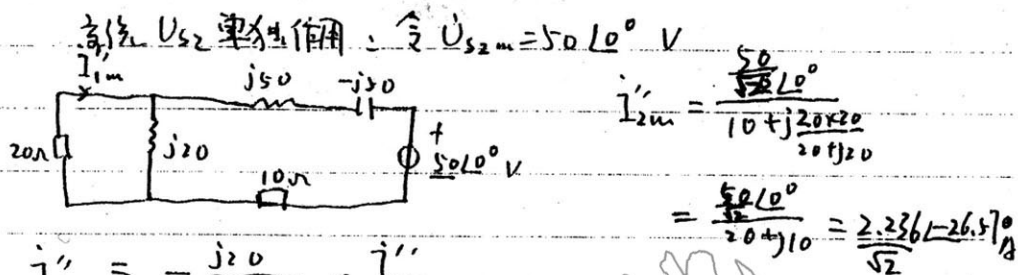 高然 Us2 单独作用：令 U̇s2m=50∠0° V
İ''1m
j50
-j50
20Ω
j20
10Ω
+
50∠0° V
İ''2m = 50/√2 ∠0° / (10+j 20×20/(20+j20))
= 50/√2 ∠0° / (20+j10) = 2.236∠-26.57°/√2 A
İ'' = - j20 İ''